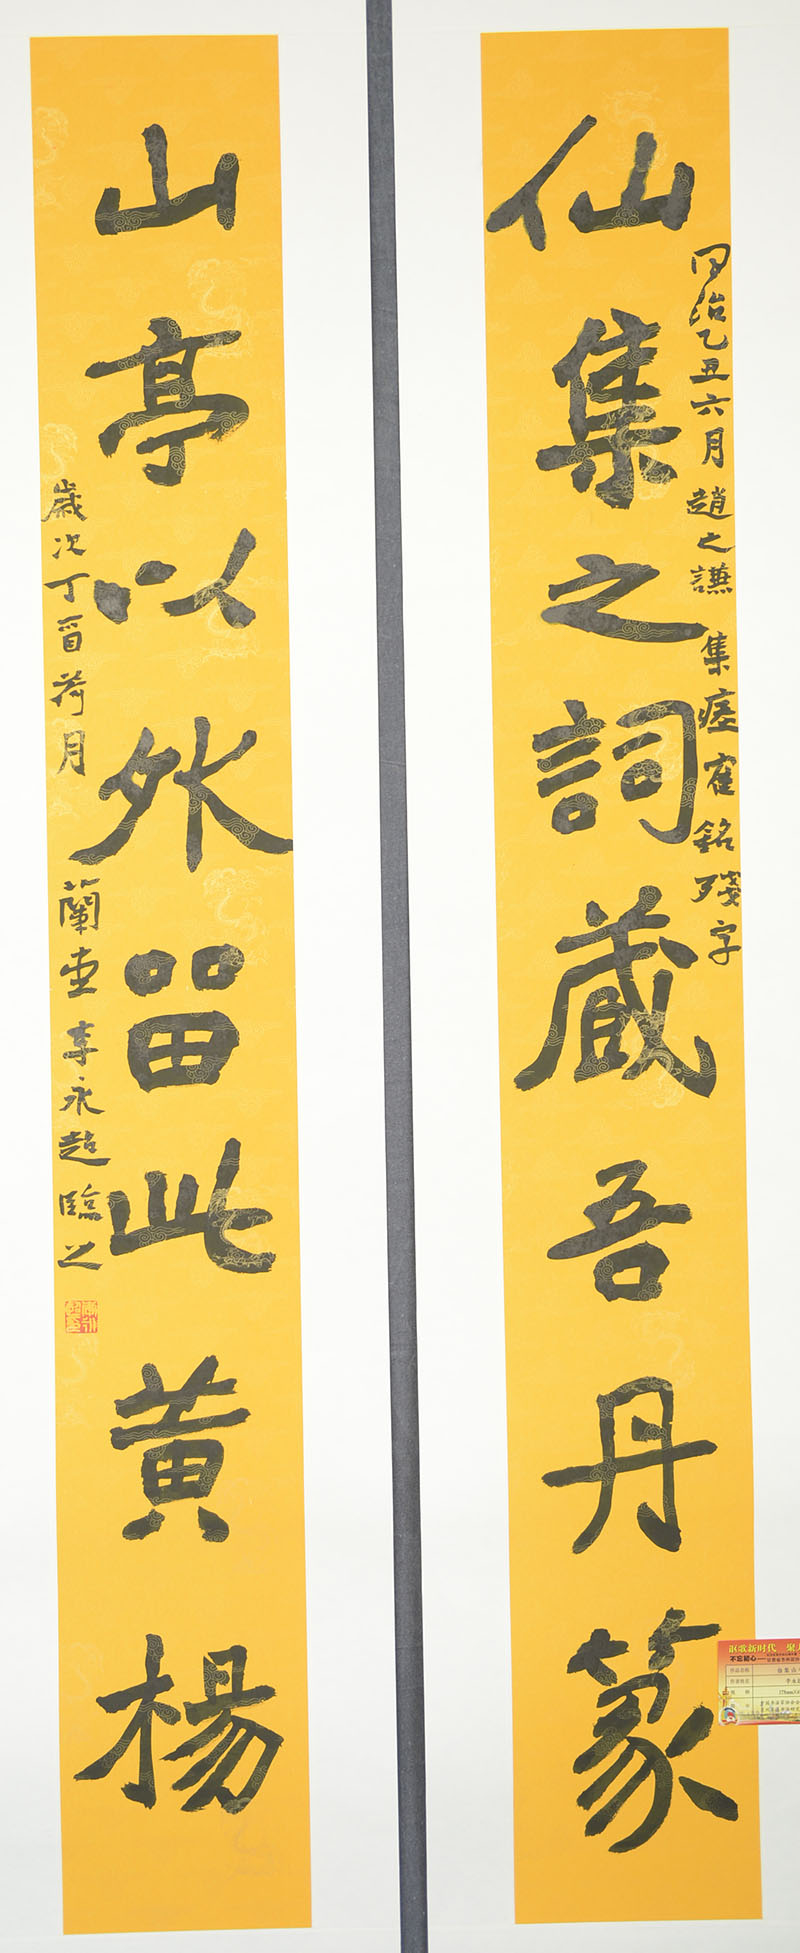 仙集之詞藏吾丹篆
同治乙丑六月趙之謙集瘞隺銘殘字
山亭以外畱此黃楊
歲次丁酉荷月蘭壺李永超臨之
讴歌新时代 聚
不忘初心
作品名称